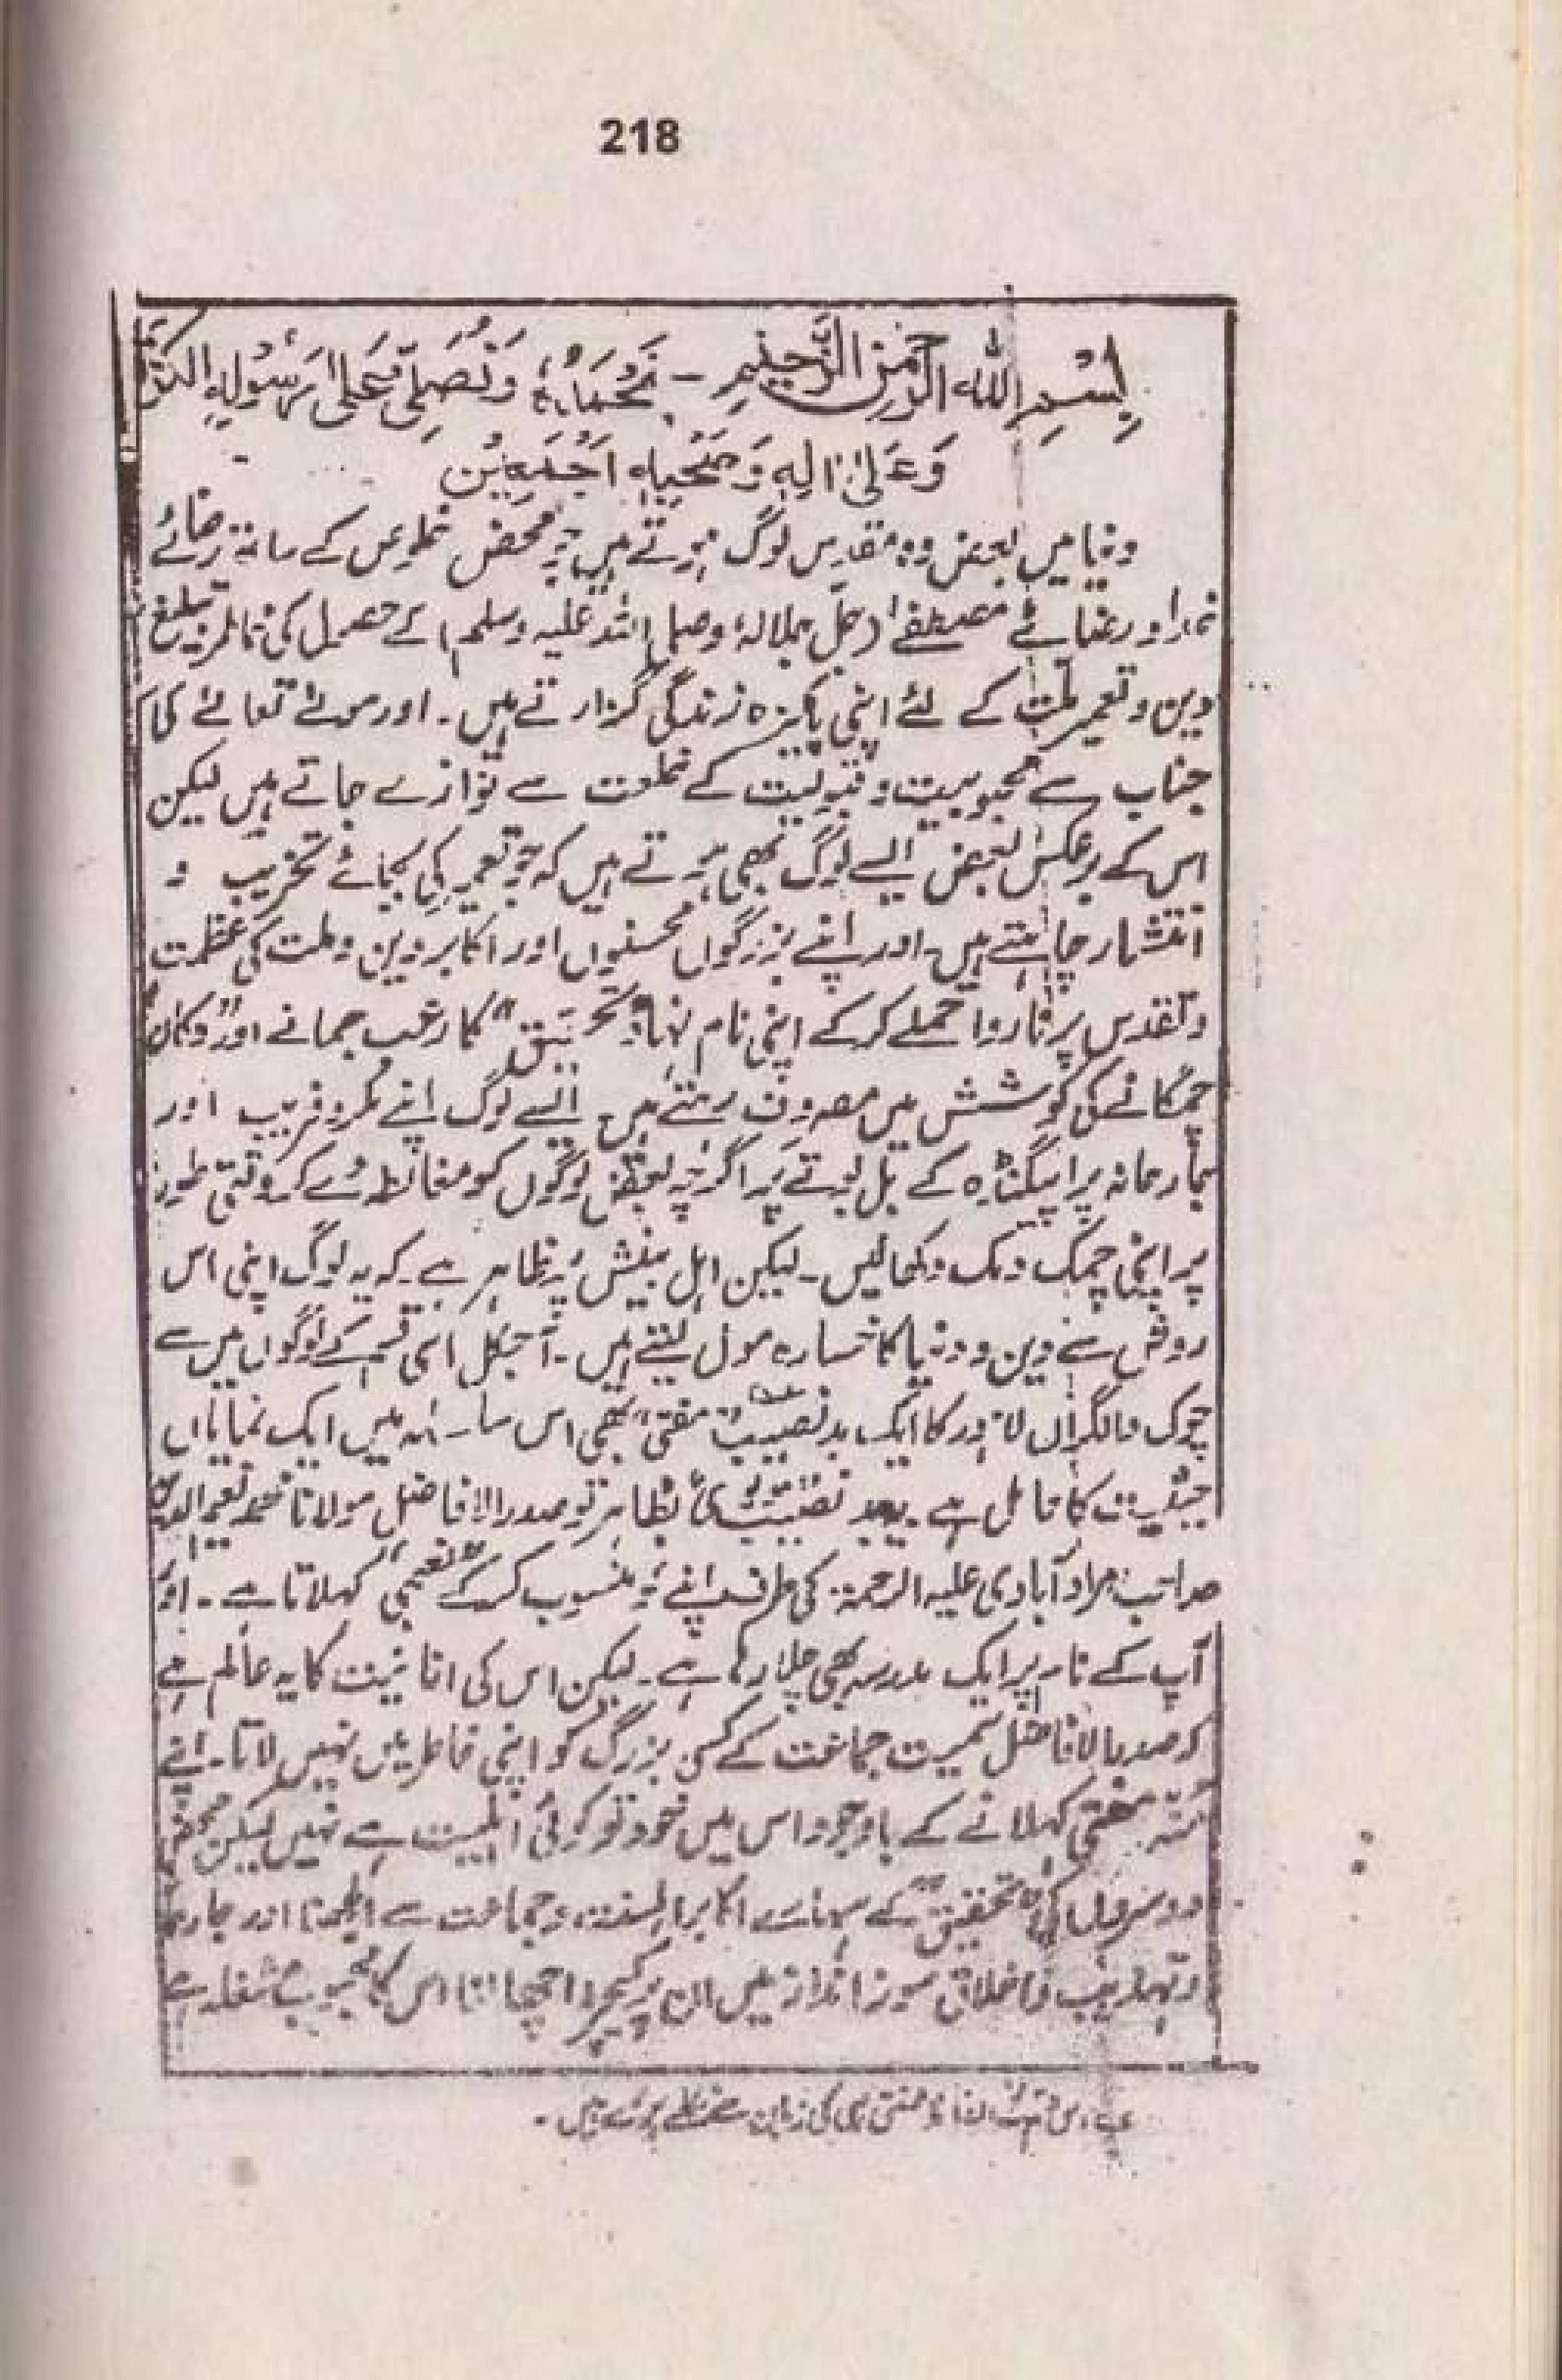 218
بِسْمِ اللہِ الرَّحْمٰنِ الرَّحِیْمِ ـ نَحْمَدُہٗ وَنُصَلِّیْ عَلٰی رَسُوْلِہِ الکَرِیْم
وَعَلٰی اٰلِہٖ وَصَحْبِہٖ اَجْمَعِیْن
دنیا میں بعض وہ مقدس لوگ ہوتے ہیں جو محض خلوص کے ساتھ رضائے
خدا و رضائے مصطفےٰ (جل جلالہٗ وصلی اللہ علیہ وسلم) کے حصول کی خاطر تبلیغ
دین و تعمیر ملت کے لئے اپنی پاکیزہ زندگی گزارتے ہیں۔ اور مولےٰ تعالےٰ کی
جناب سے محبوبیت و قبولیت کے خلعت سے نوازے جاتے ہیں لیکن
اس کے برعکس بعض ایسے لوگ بھی ہوتے ہیں کہ جو تعمیر کی بجائے تخریب و
انتشار چاہتے ہیں۔ اور اپنے بزرگوں محسنوں اور اکابر دین و ملت کی عظمت
و تقدس پر ناروا حملے کر کے اپنی نام نہاد "تحقیق" کا رعب جمانے اور "دکان"
چمکانے کی کوشش میں مصروف رہتے ہیں۔ ایسے لوگ اپنے مکر و فریب اور
جارحانہ پراپیگنڈہ کے بل بوتے پر اگرچہ بعض لوگوں کو مغالطہ دے کر وقتی طور
پر اپنی چمک دمک دکھا لیں۔ لیکن اہل بینش پر ظاہر ہے۔ کہ یہ لوگ اپنی اس
روش سے دین و دنیا کا خسارہ مول لیتے ہیں۔ آجکل اسی قسم کے لوگوں میں سے
چوک دالگراں لاہور کا ایک بدنصیب "مفتی" بھی اس سلسلہ میں ایک نمایاں
حیثیت کا حامل ہے۔ یہ بدنصیب بظاہر تو صدر الافاضل مولانا محمد نعیم الدین
صاحب مراد آبادی علیہ الرحمۃ کی طرف اپنے کو منسوب کر کے "نعیمی" کہلاتا ہے۔ اور
آپ کے نام پر ایک مدرسہ بھی چلا رہا ہے۔ لیکن اس کی انانیت کا یہ عالم ہے
کہ صدر الافاضل سمیت جماعت کے کسی بزرگ کو اپنی خاطر میں نہیں لاتا۔ اپنے
منہ مفتی کہلانے کے باوجود اس میں خود تو کوئی اہلیت ہے نہیں لیکن محض
دوسروں کی "تحقیق" کے سہارے اکابر اہلسنت و جماعت سے الجھنا اور جارحانہ
و تہذیب و اخلاق سوز انداز میں ان پر کیچڑ اچھالنا اس کا محبوب مشغلہ ہے
الفاظ مفتی ہی کی زبان سے ہیں۔